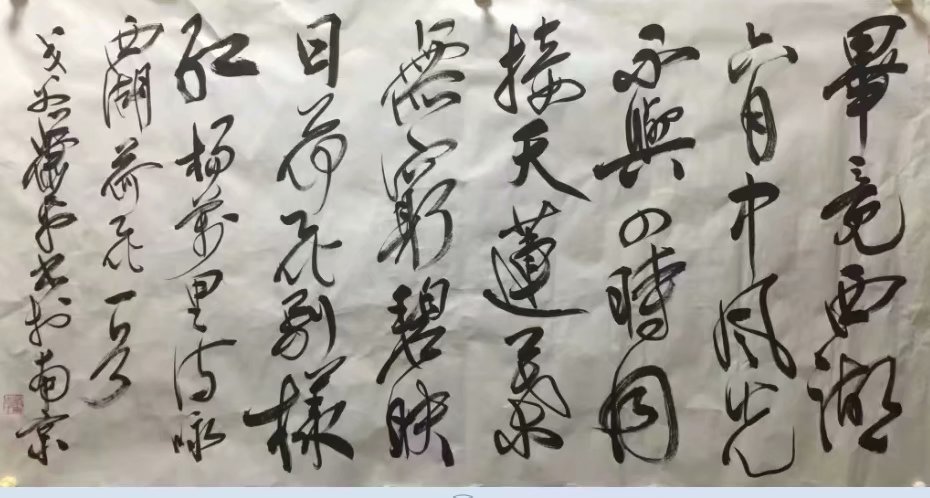 畢竟西湖
六月中風光
不與四時同
接天蓮葉
無窮碧映
日荷花別樣
紅 楊萬里詩詠
西湖荷花一首
書於南京